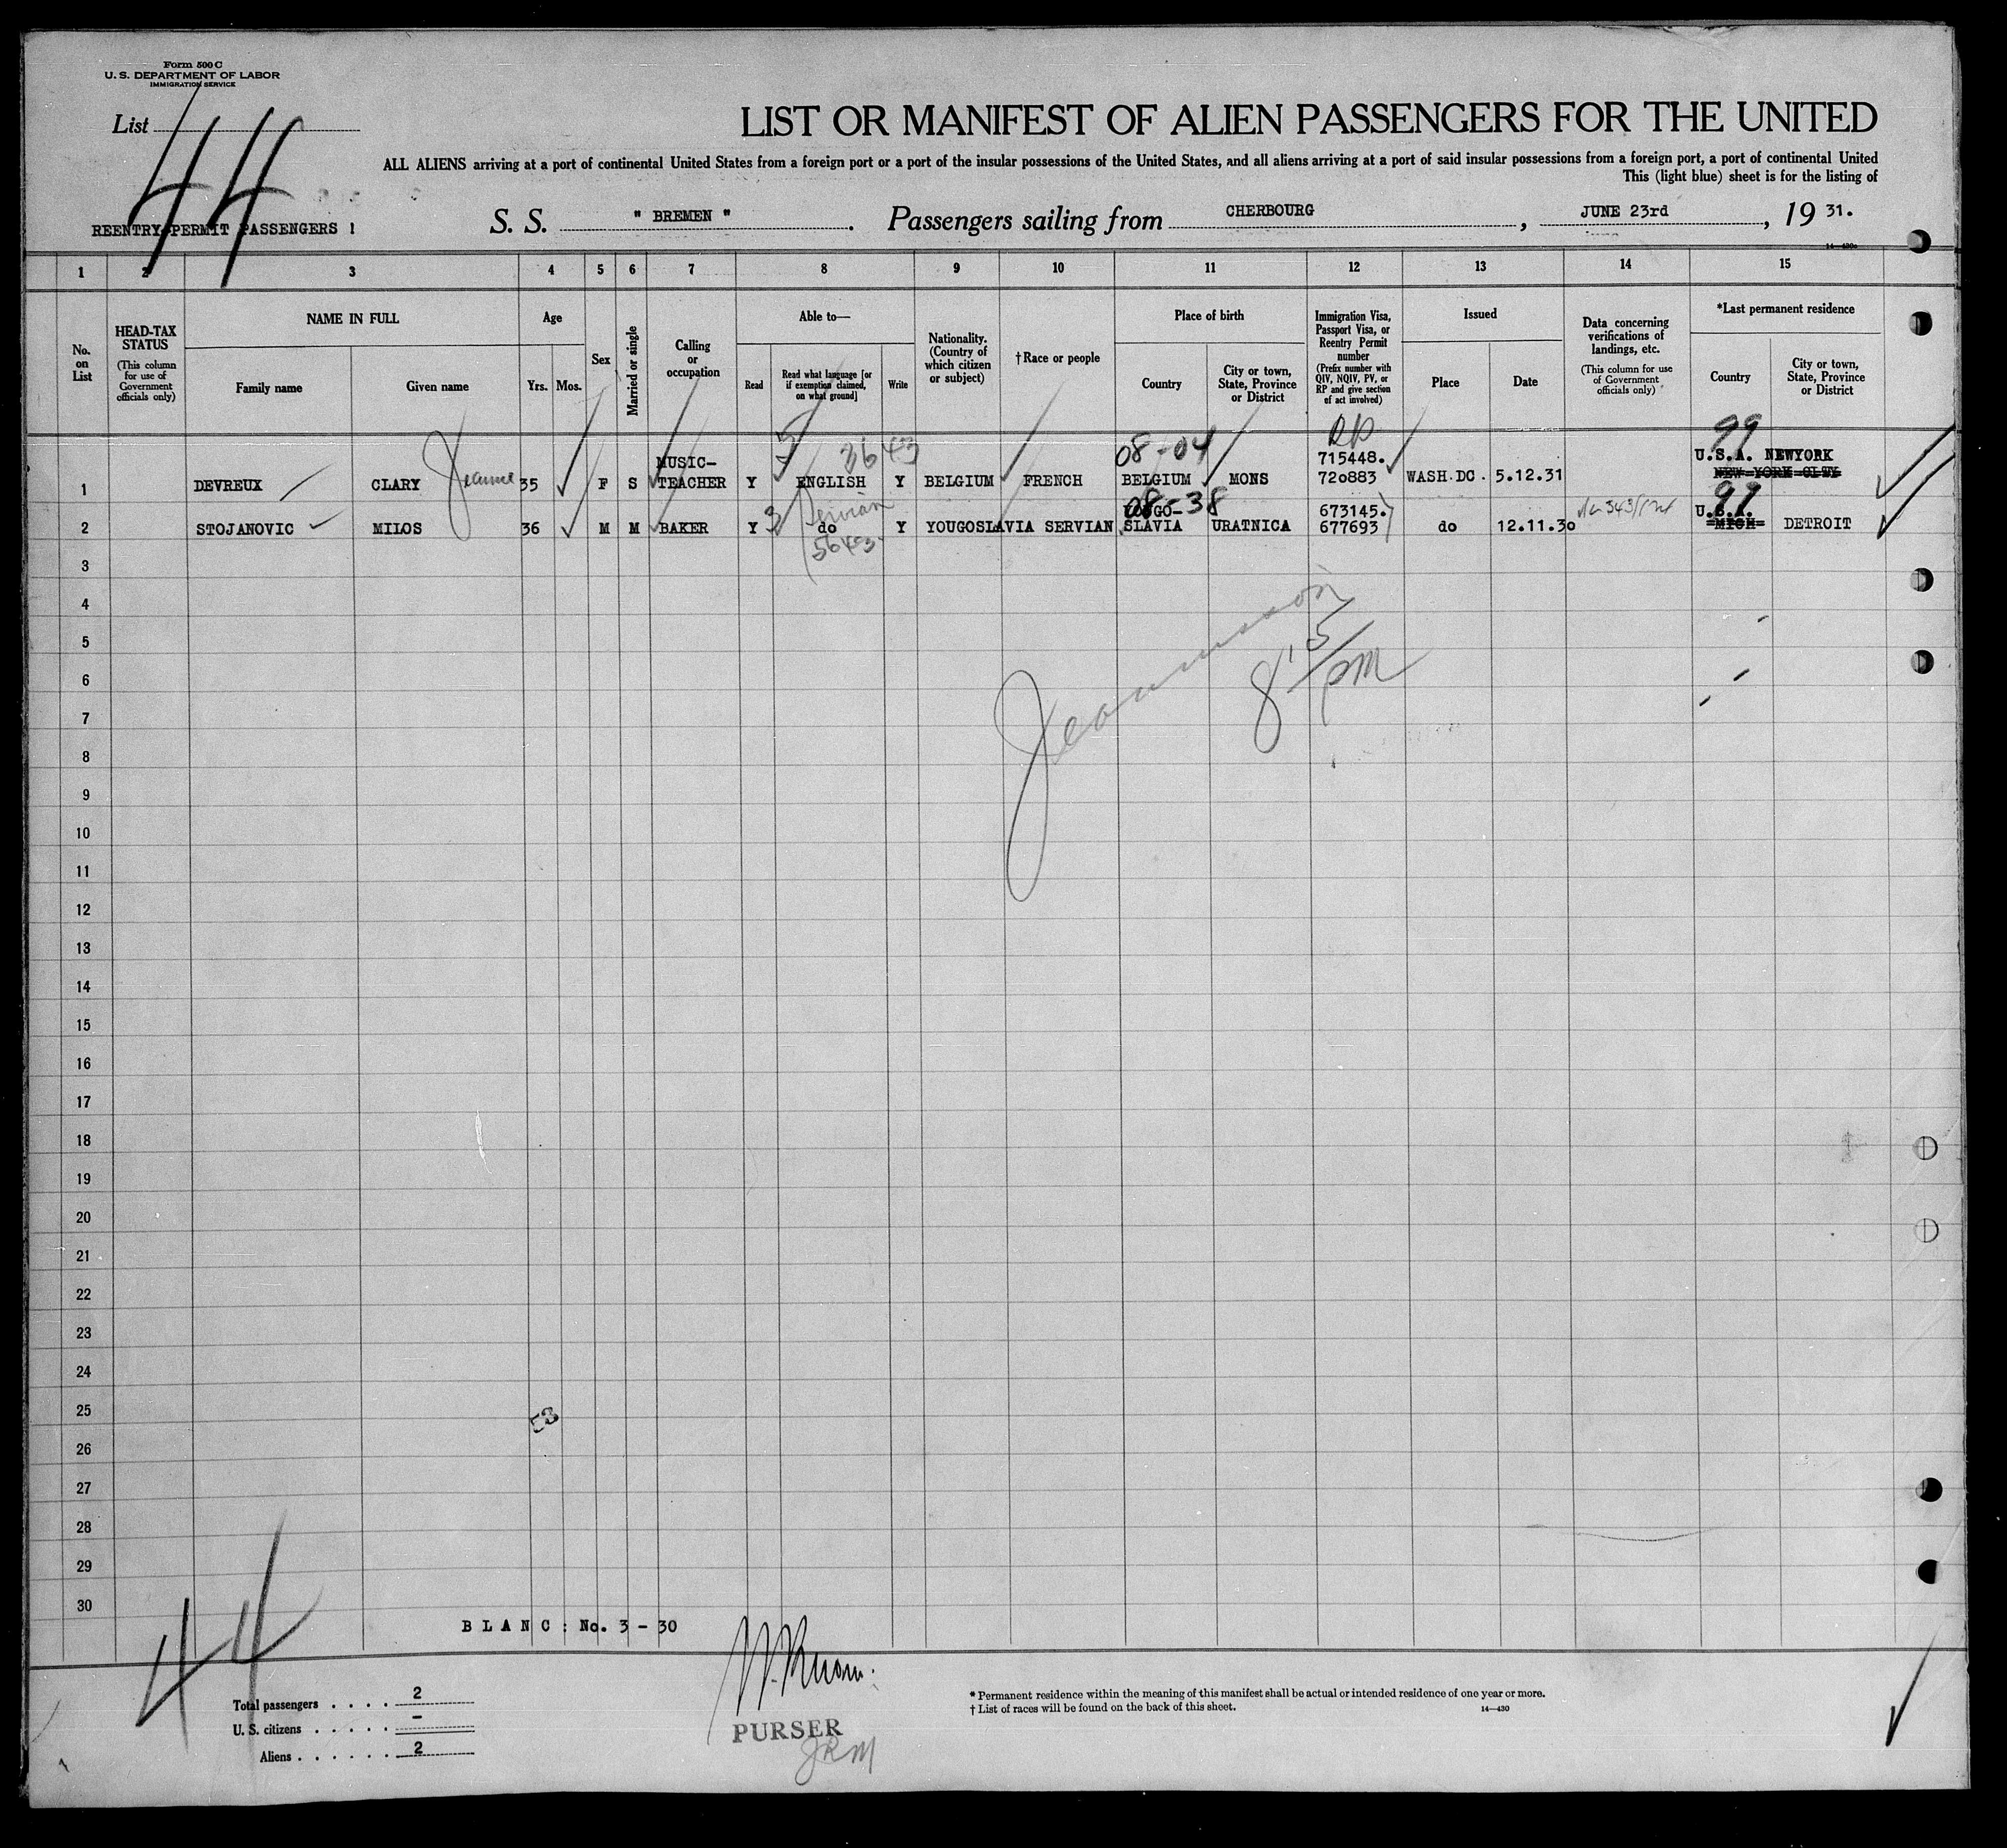 Form 500 C
U. S. DEPARTMENT OF LABOR
IMMIGRATION SERVICE
List 44
LIST OR MANIFEST OF ALIEN PASSENGERS FOR THE UNITED
ALL ALIENS arriving at a port of continental United States from a foreign port or a port of the insular possessions of the United States, and all aliens arriving at a port of said insular possessions from a foreign port, a port of continental United
This (light blue) sheet is for the listing of
REENTRY PERMIT PASSENGERS !
S. S. " BREMEN ". Passengers sailing from CHERBOURG, JUNE 23rd, 19 31.
1 2 3 4 5 6 7 8 9 10 11 12 13 14 15
No. on List
HEAD-TAX STATUS
(This column for use of Government officials only)
NAME IN FULL
Family name
Given name
Age
Yrs. Mos.
Sex
Married or single
Calling or occupation
Able to—
Read
Read what language [or if exemption claimed, on what ground]
Write
Nationality. (Country of which citizen or subject)
† Race or people
Place of birth
Country
City or town, State, Province or District
Immigration Visa, Passport Visa, or Reentry Permit number
(Prefix number with QIV, NQIV, PV, or RP and give section of act involved)
Issued
Place
Date
Data concerning verifications of landings, etc.
(This column for use of Government officials only)
*Last permanent residence
Country
City or town, State, Province or District
RP
99
08-04
3643
MUSIC- 715448. U.S.A. NEWYORK
1 DEVREUX CLARY Jeanne 35 F S TEACHER Y ENGLISH Y BELGIUM FRENCH BELGIUM MONS 720883 WASH.DC. 5.12.31 NEW YORK CITY
Servian 08-38 99
YOUGO- 673145. U.S.A.
2 STOJANOVIC MILOS 36 M M BAKER Y do Y YOUGOSLAVIA SERVIAN SLAVIA URATNICA 677693 do 12.11.30 MICH DETROIT
3
4
5
6
7
8
9
10
11
12
13
14
15
16
17
18
19
20
21
22
23
24
25
26
27
28
29
30
8 15/pm
B L A N C : No. 3 - 30
44
Total passengers . . . . 2
U. S. citizens . . . . . -
Aliens . . . . . . 2
PURSER
JRM
* Permanent residence within the meaning of this manifest shall be actual or intended residence of one year or more.
† List of races will be found on the back of this sheet.
14—430